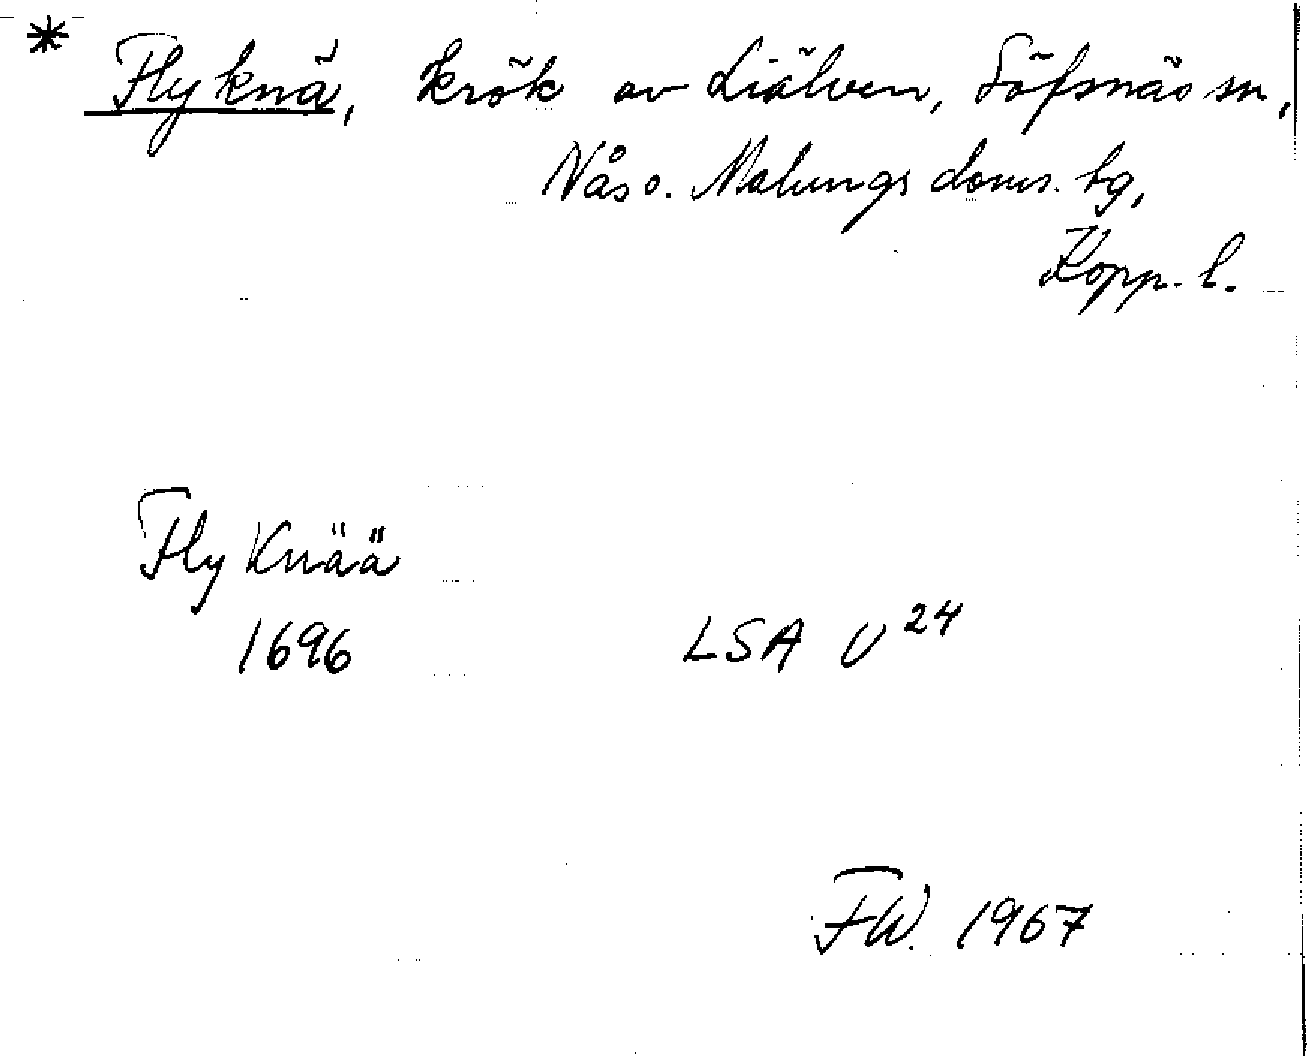 * Flyknä, krök av Liälven, Säfsnäs sn,
Nås o. Malungs doms. tg,
Kopp. l.
Fly Knää
1696 LSA U 24
FW. 1967